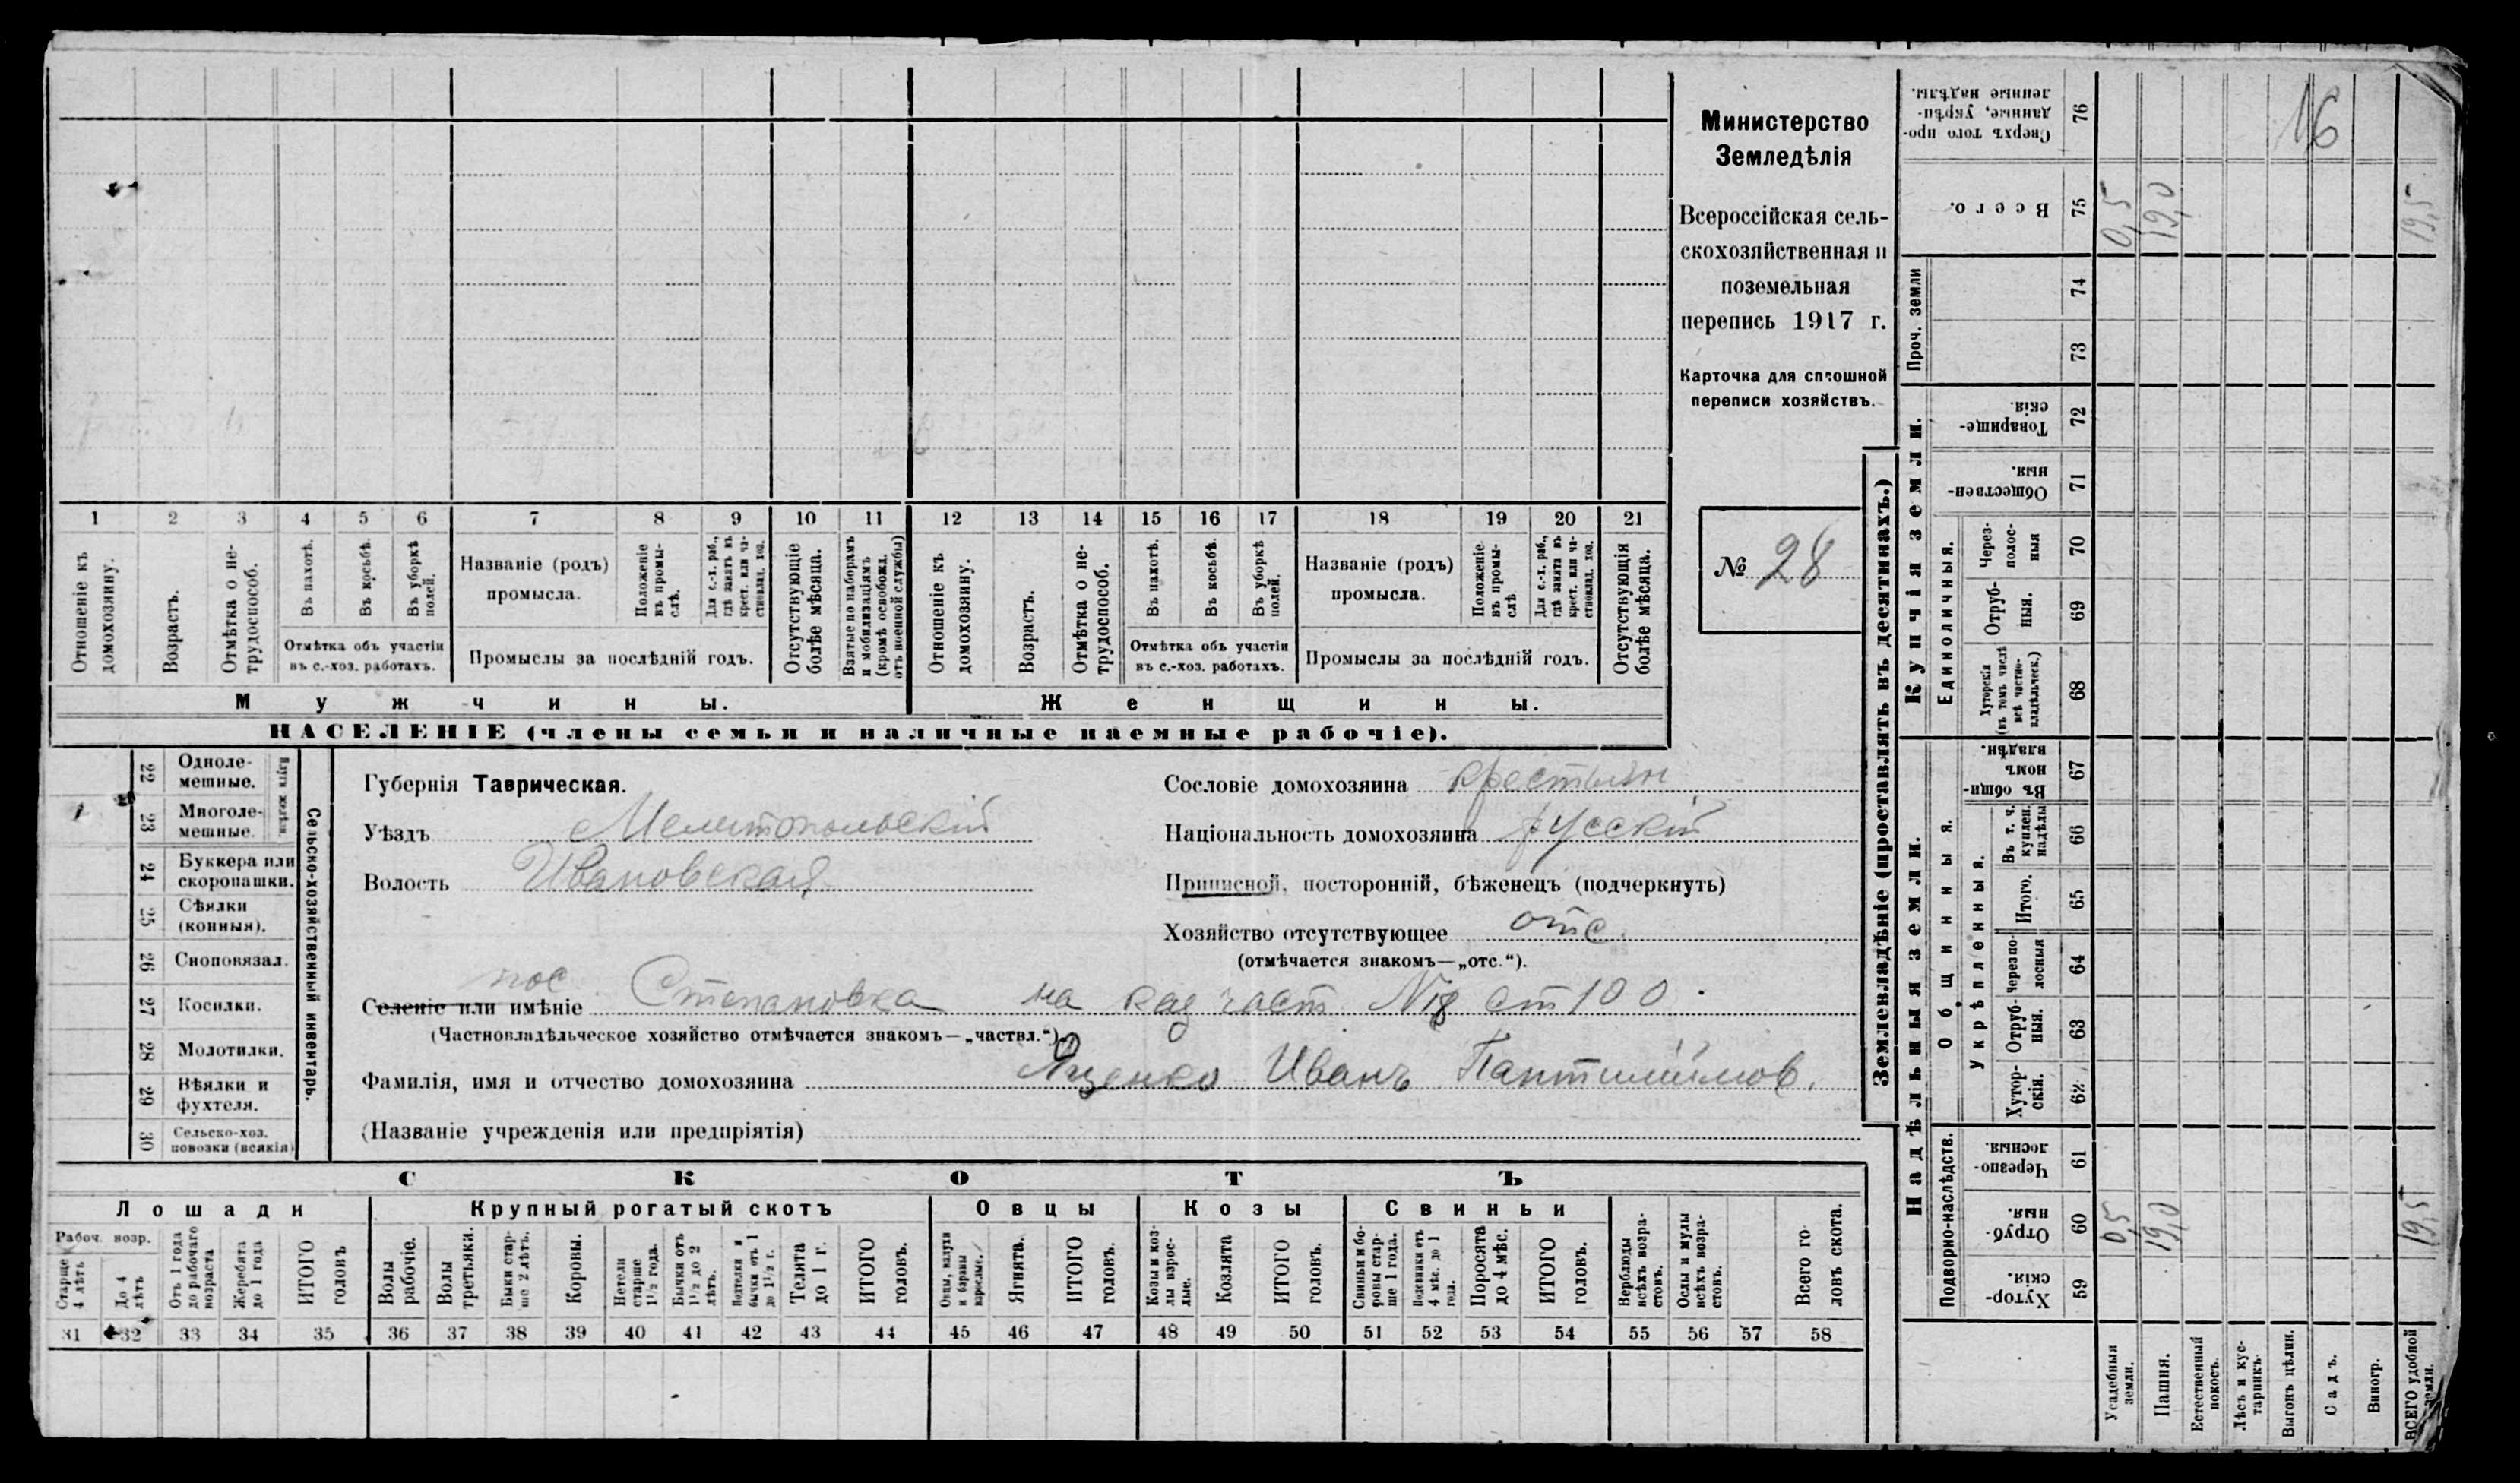 Министерство
Земледѣлія
Всероссійская сель-
скохозяйственная и
поземельная
перепись 1917 г.
Карточка для сплошной
переписи хозяйствъ.
№ 28
1 2 3 4 5 6 7 8 9 10 11 12 13 14 15 16 17 18 19 20 21
Отношеніе къ домохозяину.
Возрастъ.
Отмѣтка о не-трудоспособ.
Въ пахотѣ.
Въ косьбѣ.
Въ уборкѣ полей.
Отмѣтка объ участіи
въ с.-хоз. работахъ.
Названіе (родъ)
промысла.
Положеніе въ промы-слѣ.
Для с.-х. раб., гдѣ занятъ въ крест. или ча-стновлад. хоз.
Промыслы за послѣдній годъ.
Отсутствующіе болѣе мѣсяца.
Взятые по наборамъ и мобилизаціямъ (кромѣ освобожд. отъ военной службы)
Отношеніе къ домохозяину.
Возрастъ.
Отмѣтка о не-трудоспособ.
Въ пахотѣ.
Въ косьбѣ.
Въ уборкѣ полей.
Отмѣтка объ участіи
въ с.-хоз. работахъ.
Названіе (родъ)
промысла.
Положеніе въ промы-слѣ
Для с.-х. раб., гдѣ занята въ крест. или ча-стновлад. хоз.
Промыслы за послѣдній годъ.
Отсутствующія болѣе мѣсяца.
Мужчины. Женщины.
НАСЕЛЕНІЕ (члены семьи и наличные наемные рабочіе).
Сельско-хозяйственный инвентарь.
22 Одноле-мешные.
23 Многоле-мешные.
24 Буккера или скоропашки.
25 Сѣялки (конныя).
26 Сноповязал.
27 Косилки.
28 Молотилки.
29 Вѣялки и фухтеля.
30 Сельско-хоз. повозки (всякія)
Губернія Таврическая.
Уѣздъ Мелитопольскій
Волость Ивановская
Сословіе домохозяина крестьян
Національность домохозяина русскій
Приписной, посторонній, бѣженецъ (подчеркнуть)
Хозяйство отсутствующее отс.
(отмѣчается знакомъ—„отс.“).
пос
Селеніе или имѣніе Степановка на каз част № 8 ст 100.
(Частновладѣльческое хозяйство отмѣчается знакомъ—„частвл.“)
Фамилія, имя и отчество домохозяина Яценко Иванъ Пантилиимов.
(Названіе учрежденія или предпріятія)
СКОТЪ
Лошади Крупный рогатый скотъ Овцы Козы Свиньи
Рабоч. возр.
Старше 4 лѣтъ
До 4 лѣтъ
Отъ 1 года до рабочаго возраста
Жеребята до 1 года
ИТОГО головъ
Волы рабочіе.
Волы третьяки.
Быки стар-ше 2 лѣтъ.
Коровы.
Нетели старше 1½ года.
Бычки отъ 1½ до 2 лѣтъ.
Подтелки и бычки отъ 1 до 1½ г.
Телята до 1 г.
ИТОГО головъ.
Овцы, валухи и бараны взрослые.
Ягнята.
ИТОГО головъ.
Козы и коз-лы взрос-лые.
Козлята
ИТОГО головъ.
Свиньи и бо-ровы стар-ше 1 года.
Подсвинки отъ 4 мѣс. до 1 года.
Поросята до 4 мѣс.
ИТОГО головъ.
Верблюды всѣхъ возра-стовъ.
Ослы и мулы всѣхъ возра-стовъ.
Всего го-ловъ скота.
31 32 33 34 35 36 37 38 39 40 41 42 43 44 45 46 47 48 49 50 51 52 53 54 55 56 57 58
Землевладѣніе (проставлять въ десятинахъ.)
Купчія земли.
Надѣльныя земли.
Проч. земли
Единоличныя.
Общинныя.
Укрѣпленныя.
Подворно-наслѣдств.
Сверхъ того про-данные, укрѣп-ленные надѣлы. 76 16
Всего. 75 0,5 19,0 19,5
74
73
Товарище-скія. 72
Обществен-ныя. 71
Через-полос-ныя 70
Отруб-ныя. 69
Хуторскія (въ томъ числѣ всѣ частно-владѣльческ.) 68
Въ общин-номъ владѣн. 67
Въ т. ч. куплен. надѣлы 66
Итого. 65
Черезпо-лосныя 64
Отруб-ныя. 63
Хутор-скія. 62
Черезпо-лосныя. 61
Отруб-ныя. 60 0,5 19,0 19,5
Хутор-скія. 59
Усадебныя земли.
Пашня.
Естественный покосъ.
Лѣсъ и кус-тарникъ.
Выгонъ цѣлин.
Садъ.
Виногр.
ВСЕГО удобной земли.